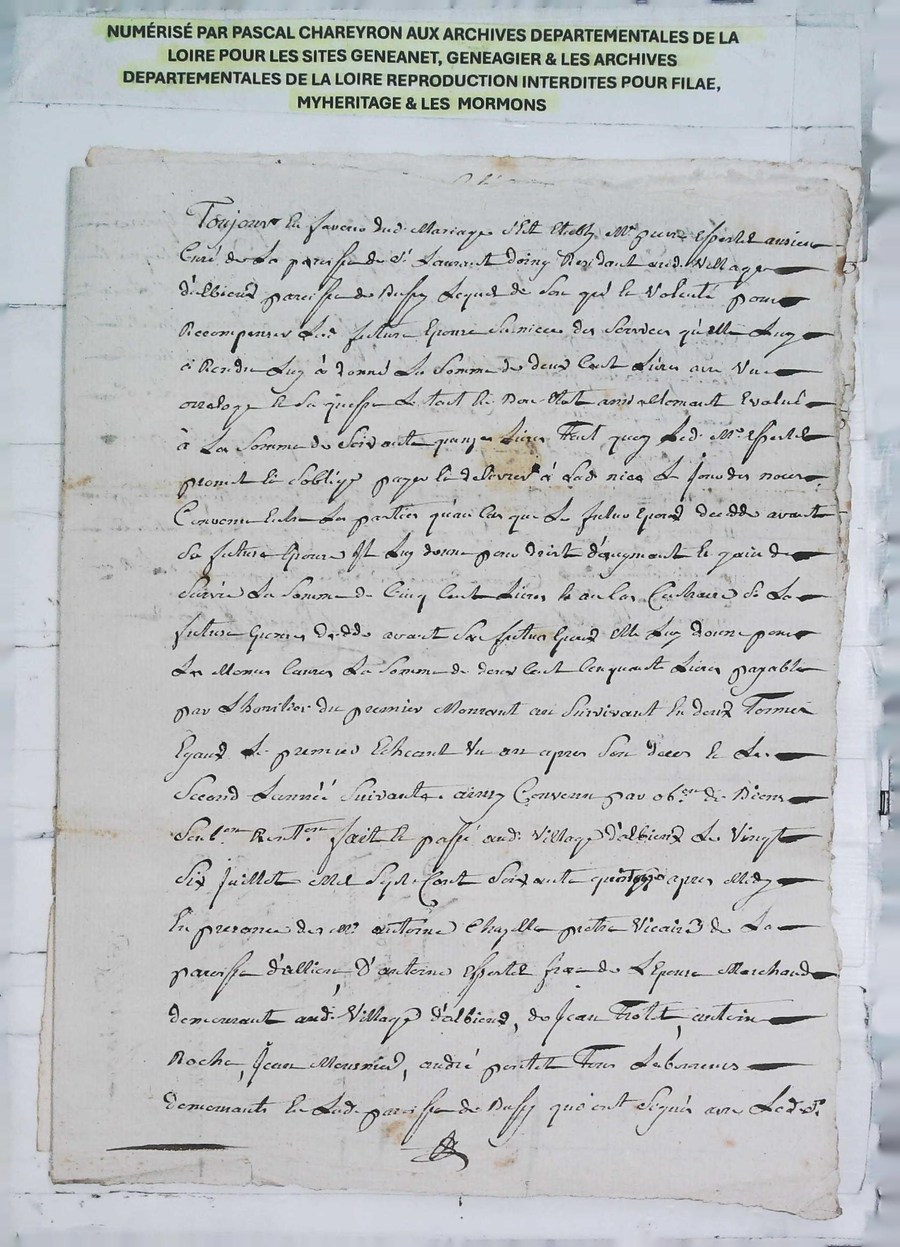 NUMÉRISÉ PAR PASCAL CHAREYRON AUX ARCHIVES DEPARTEMENTALES DE LA
LOIRE POUR LES SITES GENEANET, GENEAGIER & LES ARCHIVES
DEPARTEMENTALES DE LA LOIRE REPRODUCTION INTERDITES POUR FILAE,
MYHERITAGE & LES MORMONS
Toujours En faveur dud. Mariage S'Est Etably Mre pierre Espertel ancien
Curé de La paroisse de St Laurent Residant aud. Village
d'albieux paroisse de Bussy Lequel de Son gré Et Volonté pour
Recompenser Lad. future Epouse Sa niece des Services qu'elle Luy
à Rendu Luy à donné La Somme de deux Cent Livres avec Un
orreloge Et Sa quesse Le tout En Bon Etat annuellement Evalué
à La Somme de Soixante quinze Livres Tout quoy Led. Mre Espertel
promet Et S'oblige payer Et delivrer à Lad. niece Le jour des noces
Convenu Entre Les parties qu'au Cas que Le futur Epoux decedde avant
Sa future Epouse Il Luy donne pour droit d'augment Et gain de
Survie La Somme de Cinq Cent Livres Et au Cas Contraire Si La
future Epouse decedde avant Son futur Epoux Elle Luy donne pour
Les Memes Causes La Somme de deux Cent Cinquante Livres payable
par L'heritier du premier Mourant au Survivant En deux Termes
Egaux Le premier Echeant Un an apres Son deces Et Le
Second L'année Suivante ainsy Convenu par obon de Biens
Soubon Rention fait Et passé aud. Village d'albieux Le Vingt
Six juillet Mil Sept Cent Soixante apres Midy
En presence de Mre antoine Chazelle pretre Vicaire de La
paroisse d'allieu, d'antoine Espertel frere de L'Epouse Marchand
demeurant aud. Village d'albieux, de Jean antoine
Roche, Jean Mounier, andré pontet Tous Laboureurs
demeurants En Lad. paroisse de Bussy qui ont Signé avec Led. Sr